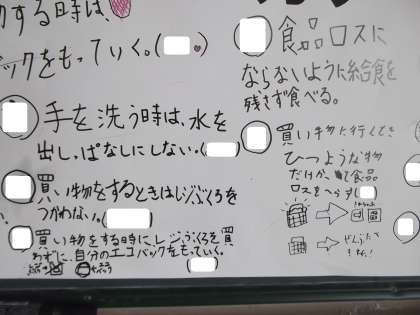 する時は、
ックをもっていく。( )
手を洗う時は、水を
出しっぱなしにしない。( )
買い物をするときはレジぶくろを
つかわない。( )
買い物をする時に、レジぶくろを買
わずに、自分のエコバックをもっていく。
( )
食品ロスに
ならないように給食を
残さず食べる。
買い物に行くとき
ひつような物
だけか 食品
ロスをへらす(